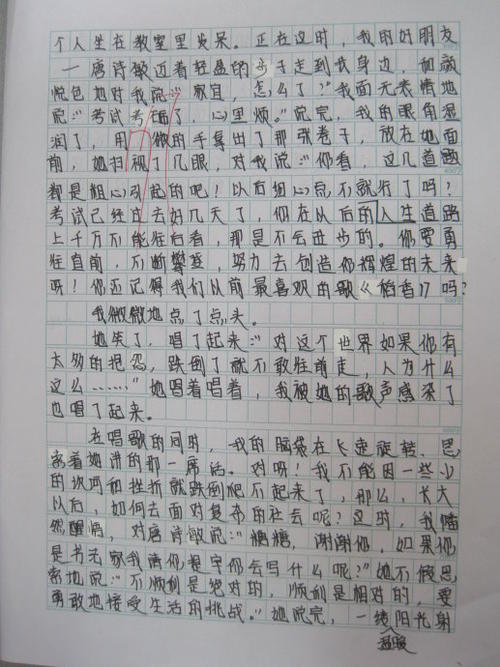 个人坐在教室里发呆。正在这时，我的好朋友
——唐诗敏迈着轻盈的步子走到我身边，和颜
悦色地对我说："家宜，怎么了？"我面无表情地
说："考试考砸了，心里烦。"说完，我的眼角湿
润了，用微微的手拿出了那张卷子，放在她面
前，她扫视了几眼，对我说："你看，这几道题
都是粗心引起的吧！以后细心点不就行了吗？
考试已经过去好几天了，你在以后的人生道路
上千万不能往后看，那是不会进步的。你要勇
往直前，不断攀登，努力去创造你辉煌的未来
呀！你还记得我们以前最喜欢的歌《稻香》吗？
我微微地点了点头。
她笑了，唱了起来："对这个世界如果你有
太多的抱怨，跌倒了就不敢往前走，人为什么
这么……"她唱着唱着，我被她的歌声感染了
也唱了起来。
在唱歌的同时，我的脑袋在飞速旋转、思
索着她讲的那一席话。对呀！我不能因一些少
的坎坷和挫折就跌倒爬不起来了，那么，长大
以后，如何去面对复杂的社会呢？这时，我幡
然醒悟，对唐诗敏说："糖糖，谢谢你，如果你
是书法家我请你提字你会写什么呢？"她不假思
索地说："不顺利是绝对的，顺利是相对的，要
勇敢地接受生活的挑战。"她说完，一缕阳光射
温暖